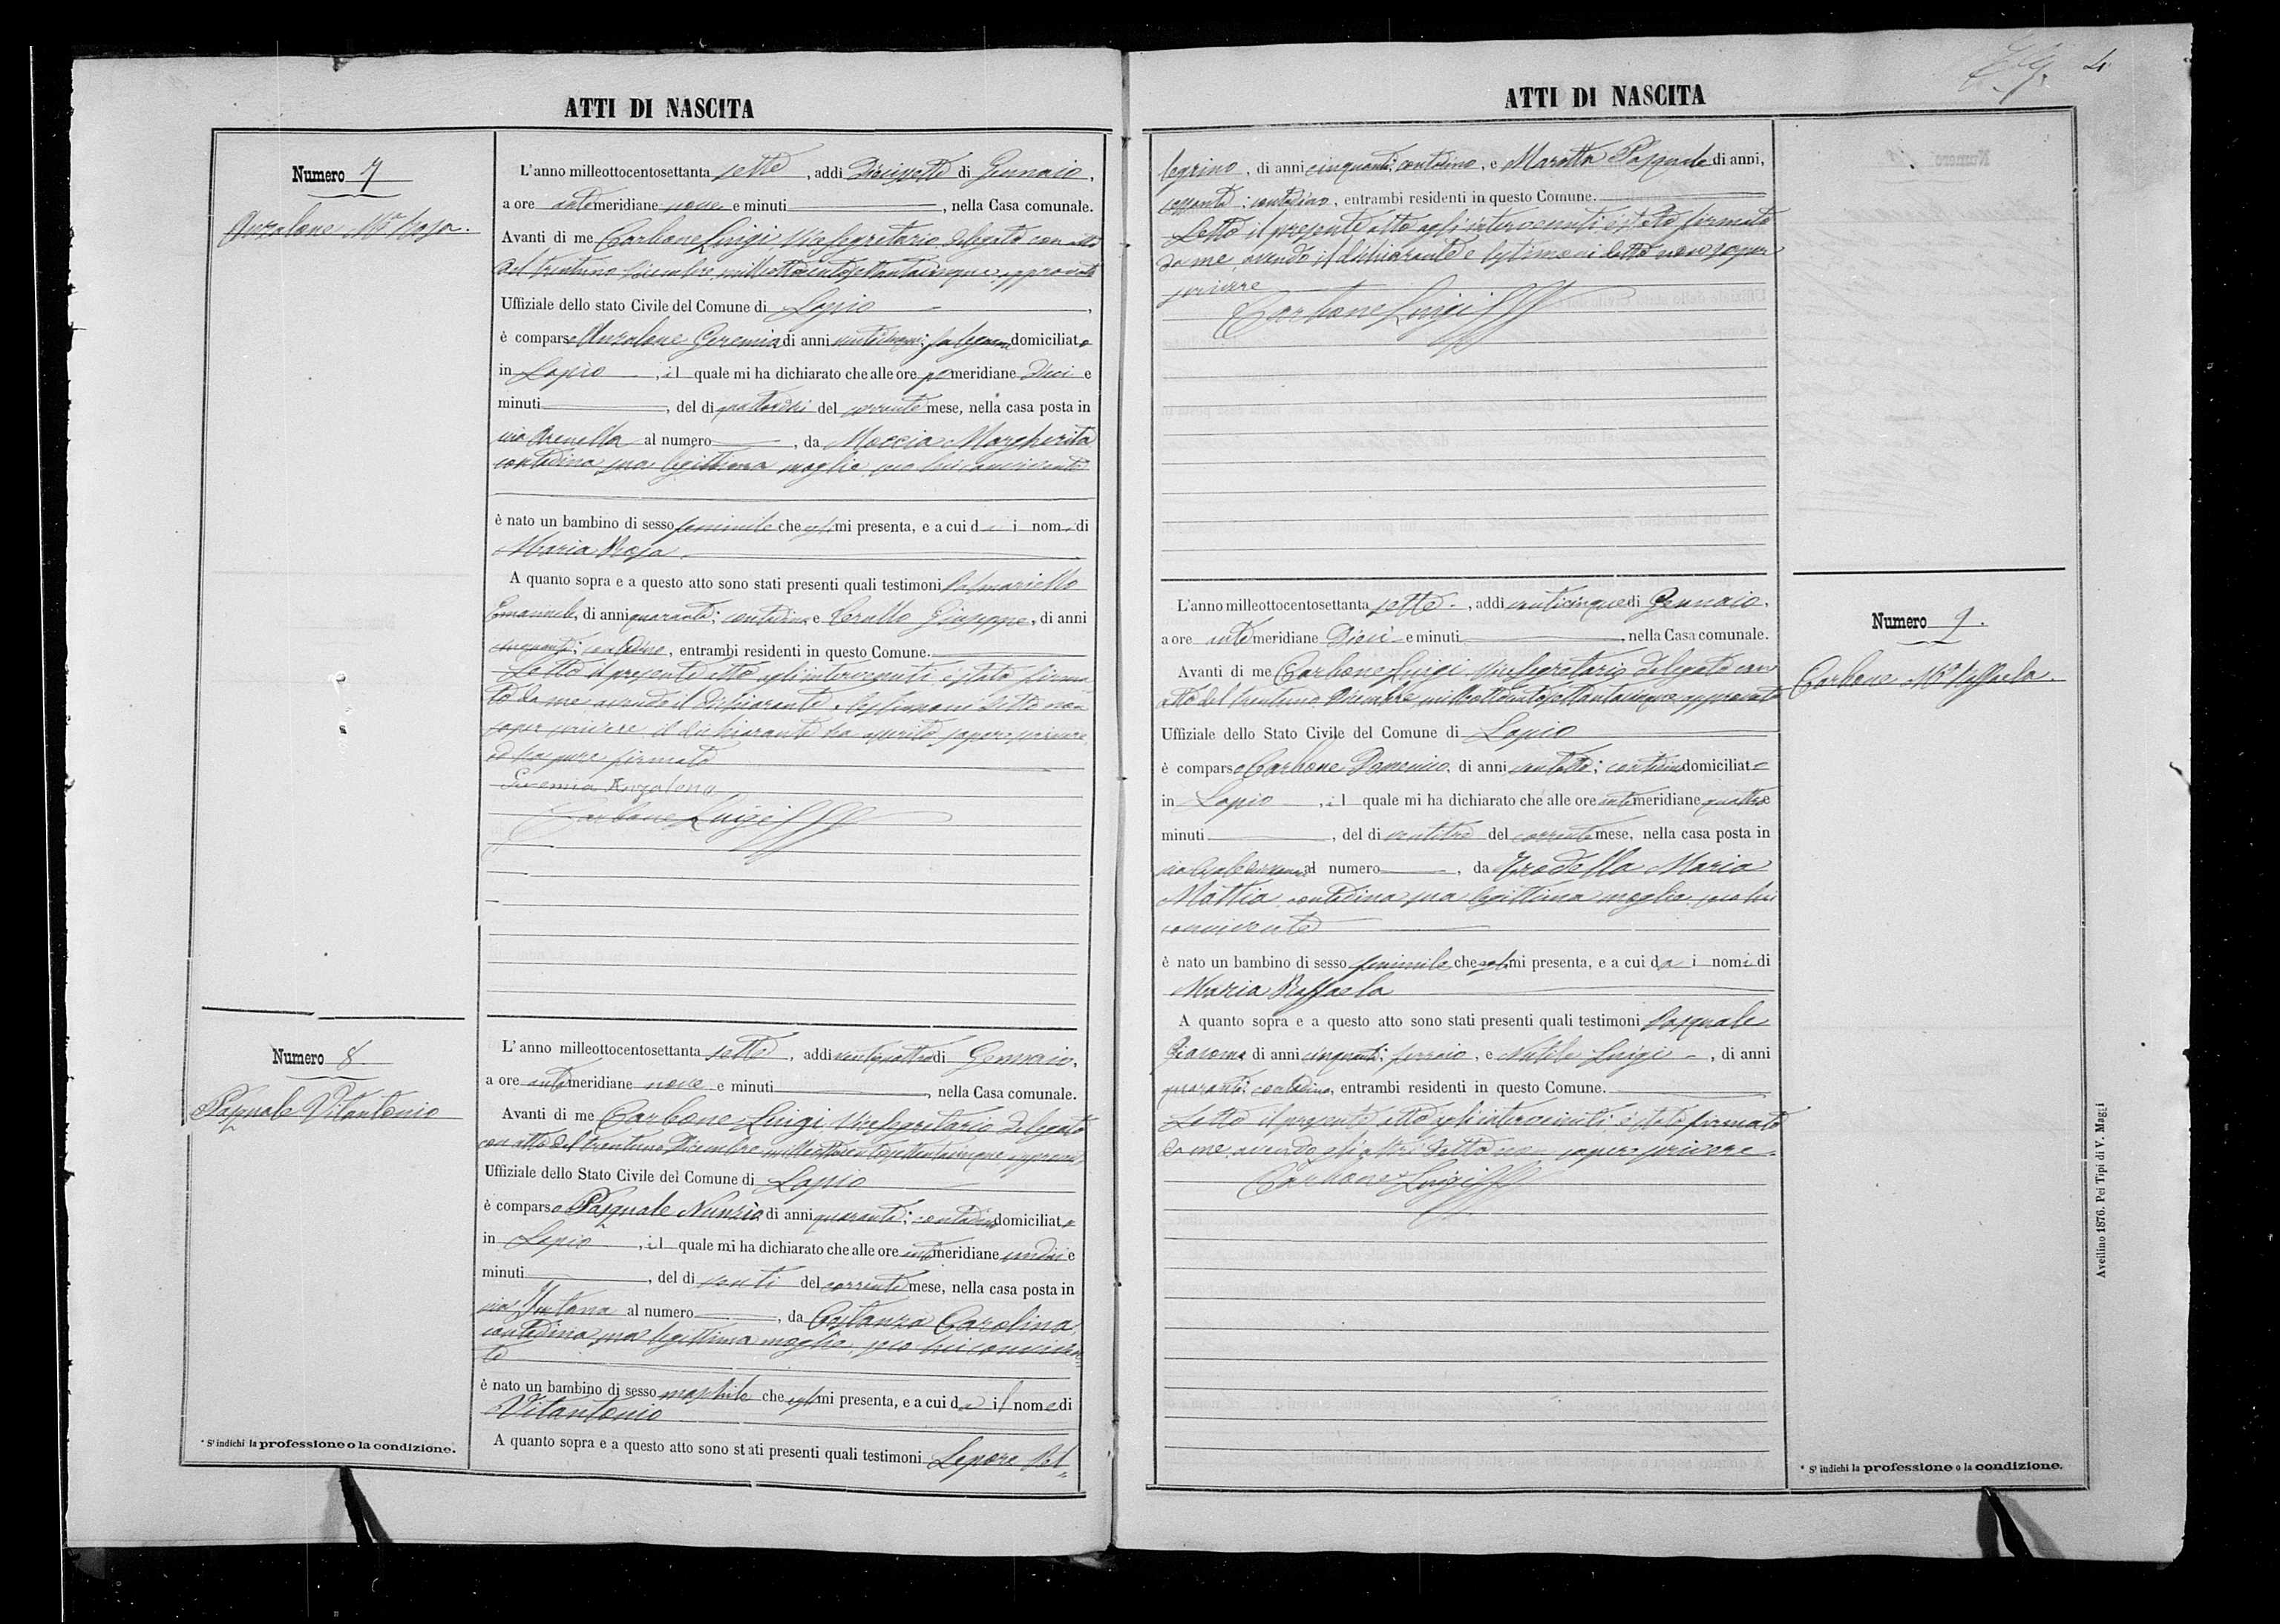 ATTI DI NASCITA
Numero 7
Anzalone Mª Rosa.
L'anno milleottocentosettanta sette, addì Diciassette di Gennaio,
a ore antimeridiane nove e minuti, nella Casa comunale.
Avanti di me Carbone Luigi Vicesegretario delegato con atto
del trentuno Dicembre milleottocentosettantacinque approvato
Uffiziale dello stato Civile del Comune di Lapio,
è comparso Anzalone Geremia di anni domiciliato
in Lapio, il quale mi ha dichiarato che alle ore pomeridiane Dieci e
minuti, del dì quattordici del corrente mese, nella casa posta in
via Arenella al numero, da Moccia Margherita
contadina sua legittima moglie, seco lui convivente
è nato un bambino di sesso femminile che egli mi presenta, e a cui dà i nomi di
Maria Rosa.
A quanto sopra e a questo atto sono stati presenti quali testimoni Palmariello
Emanuele, di anni quaranta; contadino e Cerullo Giuseppe, di anni
cinquanta; contadino, entrambi residenti in questo Comune.
Letto il presente atto agli intervenuti è stato firma
to da me avendo il Dichiarante e testimoni detto non
saper scrivere il dichiarante ha asserito sapere scrivere
ed ha pure firmato
Geremia Anzalone
Carbone Luigi
Numero 8.
Pasquale Vitantonio
L'anno milleottocentosettanta sette, addì ventiquattro di Gennaio,
a ore antimeridiane nove e minuti, nella Casa comunale.
Avanti di me Carbone Luigi Vicesegretario delegato
con atto del trentuno Dicembre milleottocentosettantacinque approvato
Uffiziale dello Stato Civile del Comune di Lapio
è comparso Pasquale Nunzio, di anni quaranta; contadino domiciliato
in Lapio, il quale mi ha dichiarato che alle ore antimeridiane undici e
minuti, del dì venti del corrente mese, nella casa posta in
via Fontana al numero, da Costanza Carolina,
contadina sua legittima moglie, seco lui conviven
te
è nato un bambino di sesso maschile che egli mi presenta, e a cui dà il nome di
Vitantonio
A quanto sopra e a questo atto sono stati presenti quali testimoni Lepore Pel=
* S' indichi la professione o la condizione.
ATTI DI NASCITA
4
legrino, di anni cinquanta; contadino, e Marotta Pasquale di anni,
sessanta; contadino, entrambi residenti in questo Comune.
Letto il presente atto agli intervenuti è stato firmato
da me, avendo il dichiarante e testimoni detto non saper
scrivere
Carbone Luigi
Numero 9.
Carbone Mª Raffaela.
L'anno milleottocentosettanta sette, addì venticinque di Gennaio,
a ore antimeridiane Dieci e minuti, nella Casa comunale.
Avanti di me Carbone Luigi Vicesegretario delegato con
atto del trentuno Dicembre milleottocentosettantacinque approvato
Uffiziale dello Stato Civile del Comune di Lapio
è comparso Carbone Domenico, di anni ventotto; contadino domiciliato
in Lapio, il quale mi ha dichiarato che alle ore antimeridiane quattro e
minuti, del dì ventitre del corrente mese, nella casa posta in
via al numero, da Trodella Maria
Mattia contadina sua legittima moglie, seco lui
convivente
è nato un bambino di sesso femminile che egli mi presenta, e a cui dà i nomi di
Maria Raffaela
A quanto sopra e a questo atto sono stati presenti quali testimoni Pasquale
Giacomo di anni cinquanta; ferraio, e Nutile Luigi, di anni
quaranta; contadino, entrambi residenti in questo Comune.
Letto il presente atto agli intervenuti, è stato firmato
da me, avendo gli altri detto non saper scrivere.
Carbone Luigi
* S' indichi la professione o la condizione.
Avellino 1876. Pei Tipi di V. Maggi